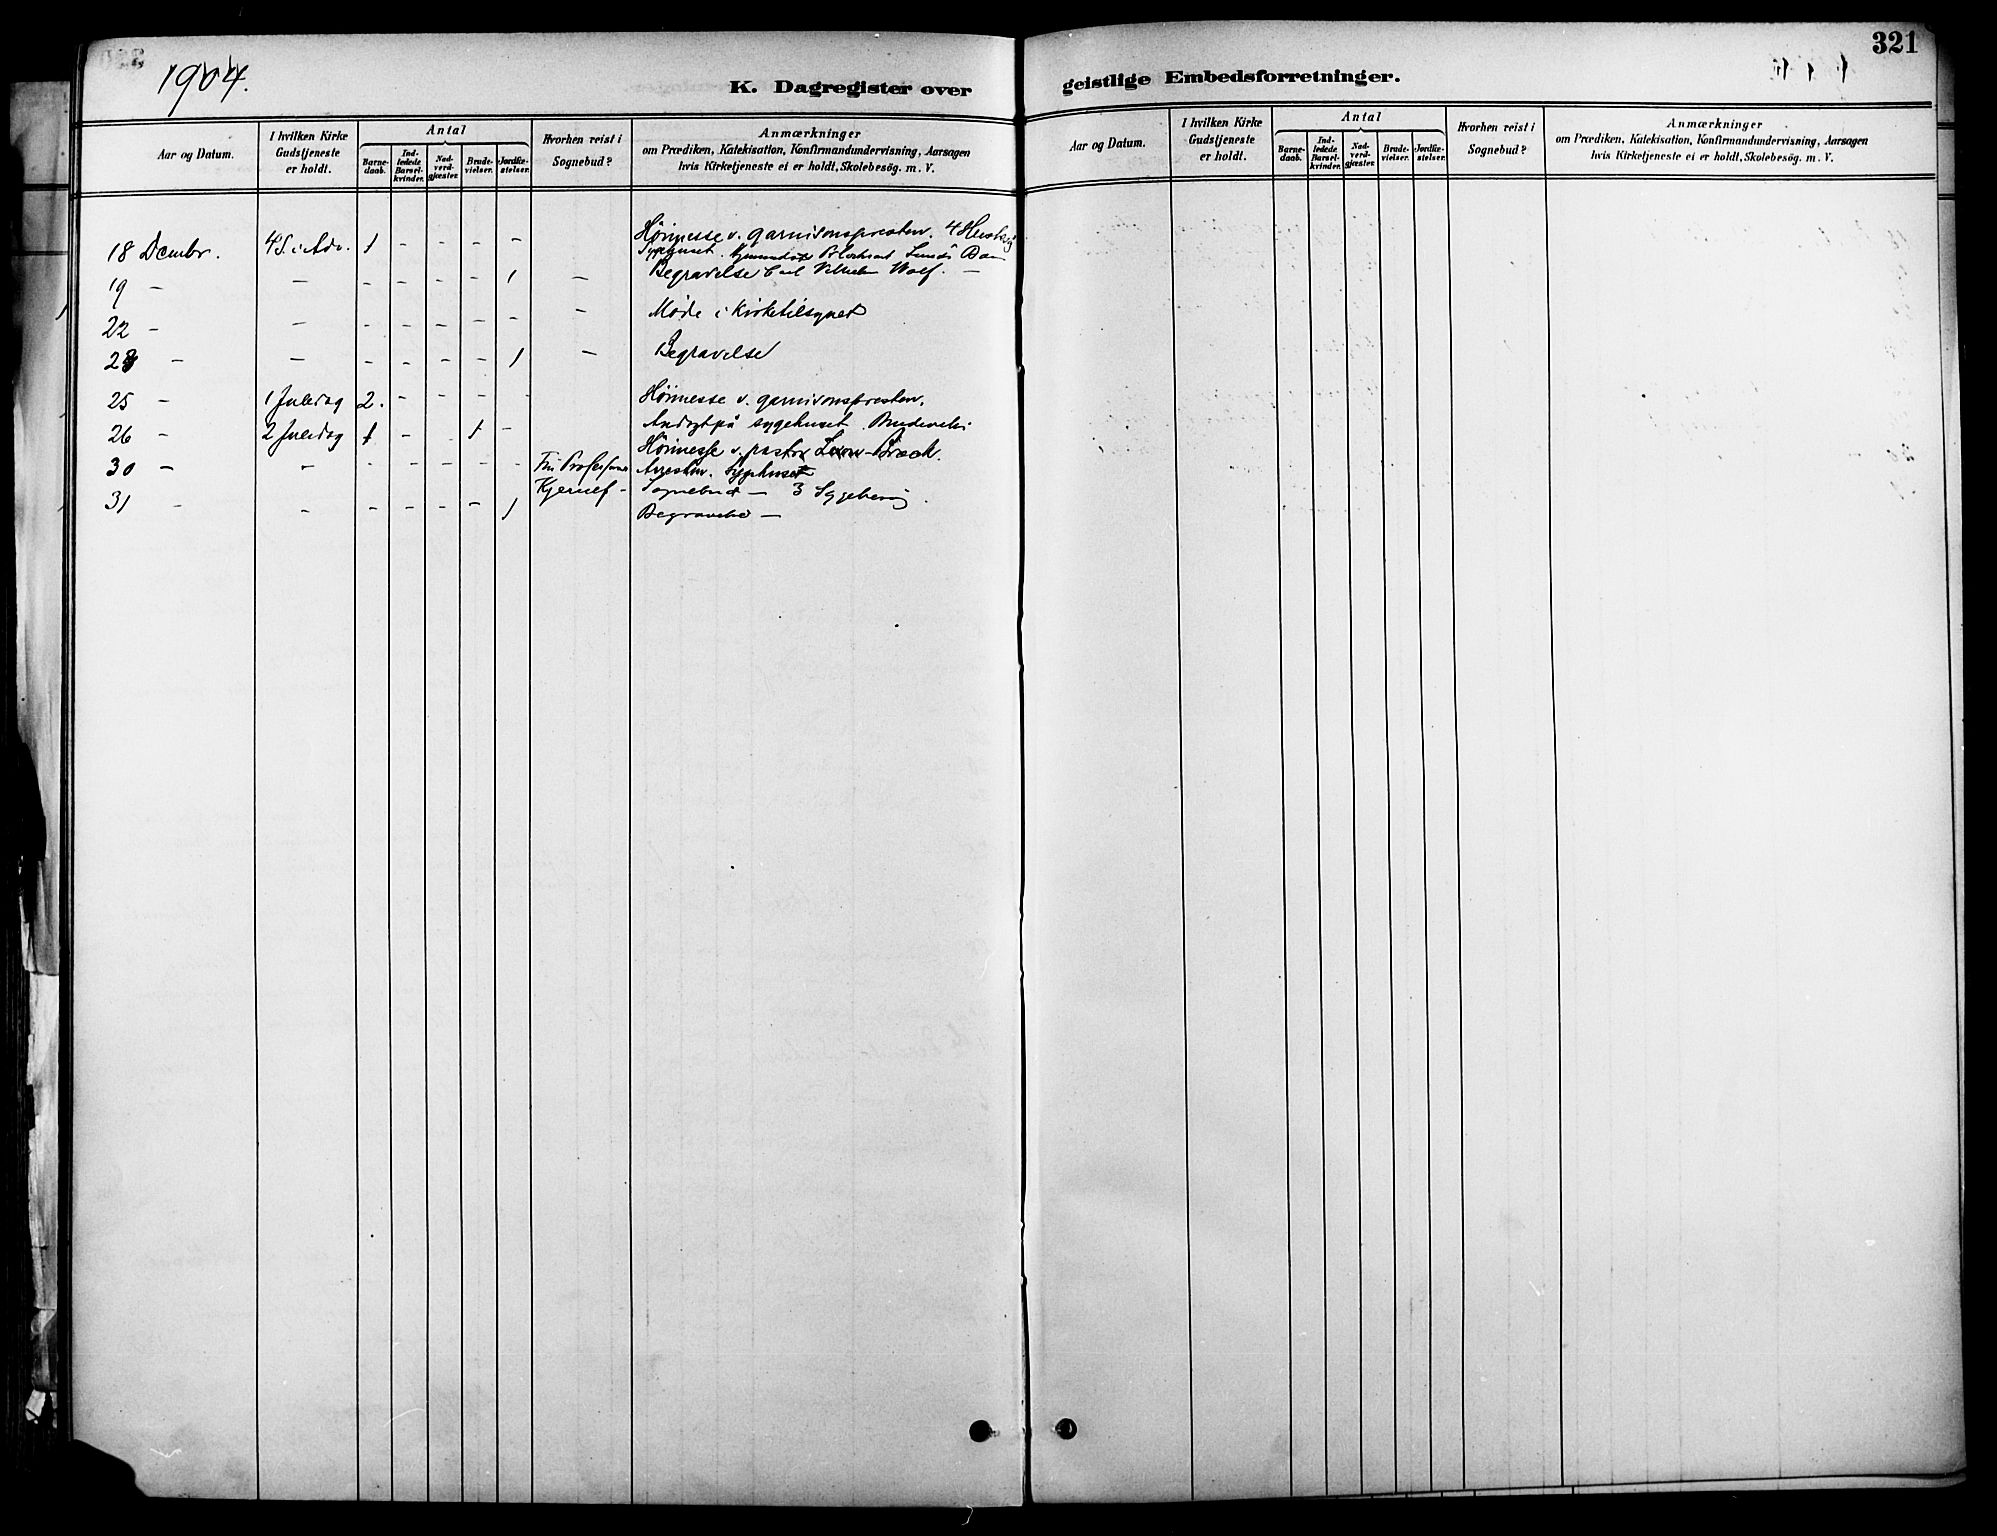 1904.
K. Dagregister over
Aar og Datum.
I hvilken Kirke
Gudstjeneste
er holdt.
Antal
Barne-
daab.
Ind-
ledede
Barsel-
kvinder.
Nad-
verd-
gjæster.
Brude-
vielser.
Jordfæ-
stelser.
Hvorhen reist i
Sognebud?
Anmærkninger
om Prædiken, Katekisation, Konfirmandundervisning, Aarsagen
hvis Kirketjeneste ei er holdt, Skolebesög. m. V.
18 Dcembr. 4 S. i Adv. 1 - - - - Höimesse v. garnisonspresten. 4
Sygehuset.
19 - - - - - - 1 - Begravelse Carl Vilhelm Wolf. -
22 - - - - - - - - Möde i Kirketilsynet
28 - - - - - - 1 - Begravelse
25 - 1 Juledag 2. - - - - Höimesse v. garnisonspresten.
26 - 2 Juledag 1 - 1 - Andagt på sygehuset.
Höimesse v. pastor
30 - - - - - - - Fru Professor Sygehuset
Sognebud - 3
31 - - - - - - 1 Begravelse -
321
geistlige Embedsforretninger.
Aar og Datum.
I hvilken Kirke
Gudstjeneste
er holdt.
Antal
Barne-
daab.
Ind-
ledede
Barsel-
kvinder.
Nad-
verd-
gjæster.
Brude-
vielser.
Jordfæ-
stelser.
Hvorhen reist i
Sognebud?
Anmærkninger
om Prædiken, Katekisation, Konfirmandundervisning, Aarsagen
hvis Kirketjeneste ei er holdt, Skolebesög. m. V.